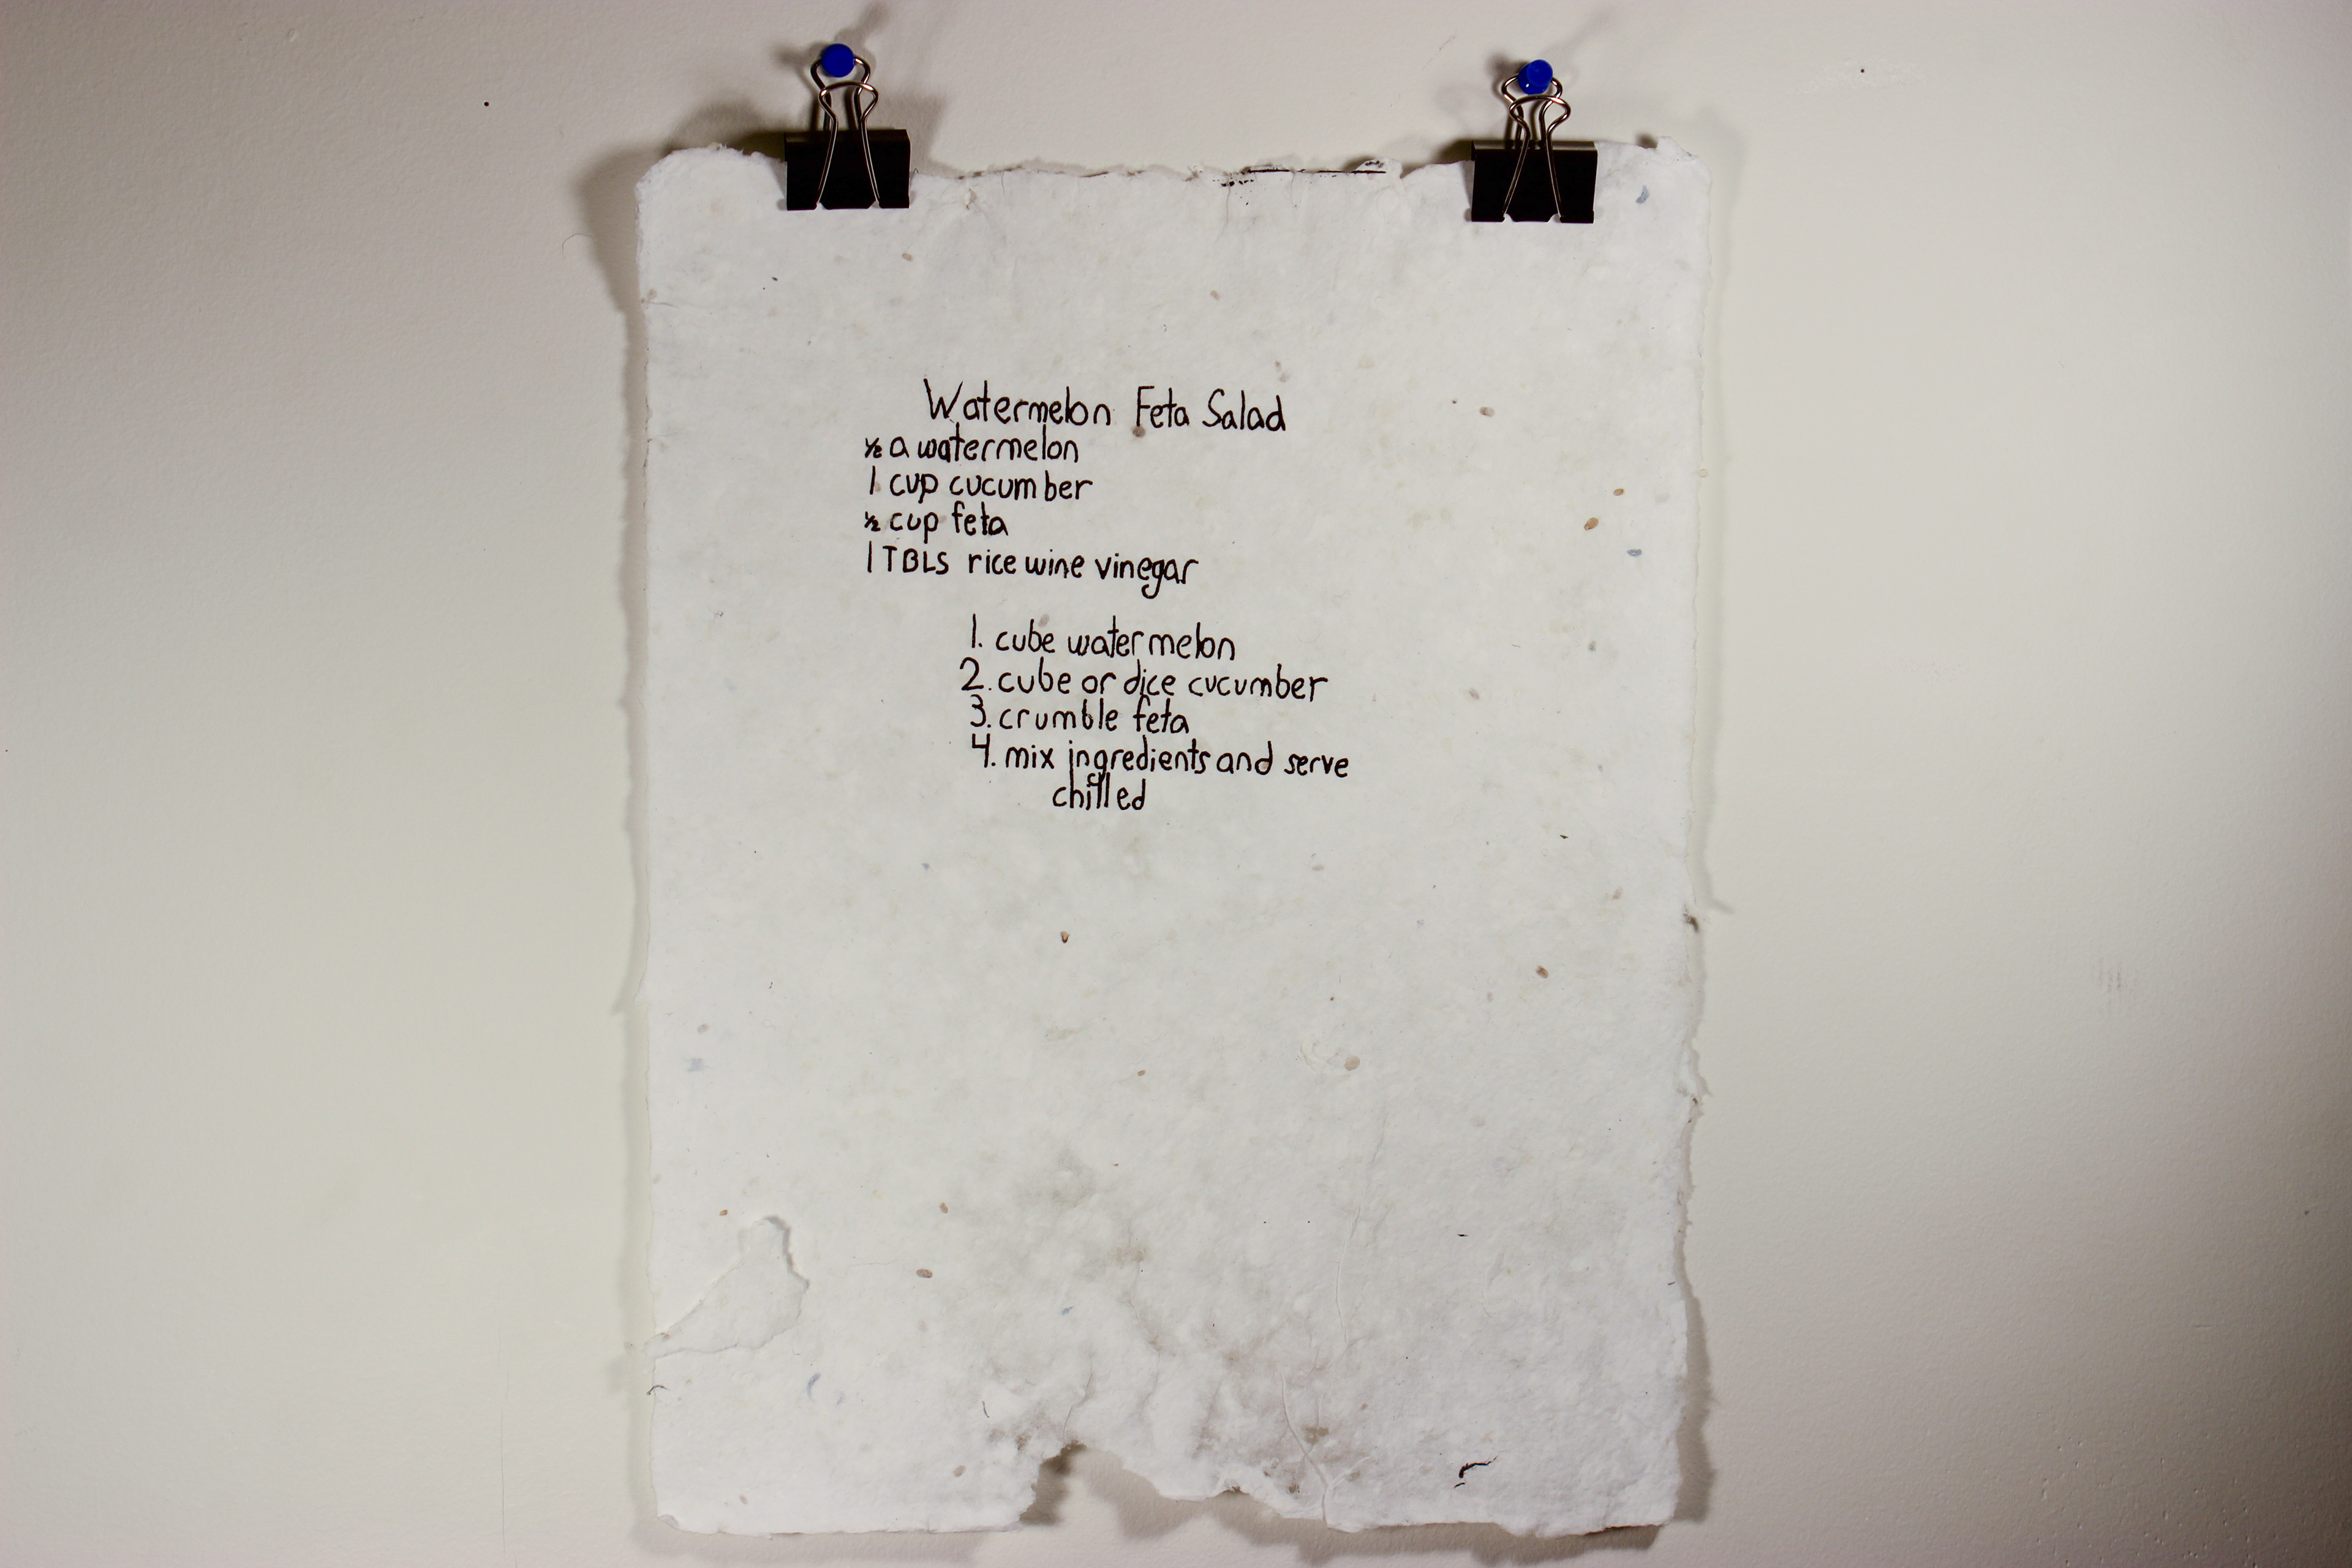 Watermelon Feta Salad
½ a watermelon
1 cup cucumber
½ cup feta
1 TBLS rice wine vinegar
1. cube watermelon
2. cube or dice cucumber
3. crumble feta
4. mix ingredients and serve
chilled